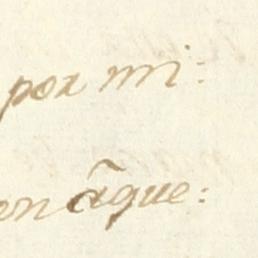 por mi:
en ãque: